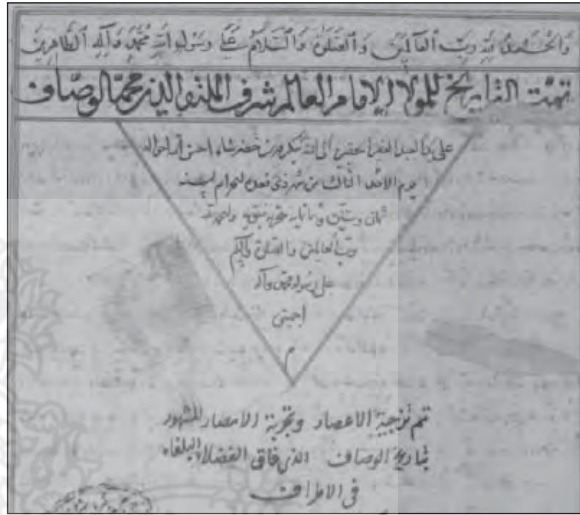 والحمد لله رب العالمين والصلوة والسلام علی رسوله محمد وآله الطاهرين
تمت التاريخ للمولا الامام العالم شرف الملة والدين محمد الوصاف
علی يد العبد الفقير الحقير الی الله بن خضر شاه احسن الله احواله
يوم الاحد الثالث من شهر ذی قعدة الحرام لسنه
ثمان وستين وثمانمایه هجریه نبویه والحمد لله
رب العالمين والصلوة
علی رسوله محمد وآله
اجمعين
م
تمم تزجية الامصار وتجزية الاعصار المشهور
بتاريخ الوصاف الذی فاق الفضلاء البلغاء
فی الاطراف